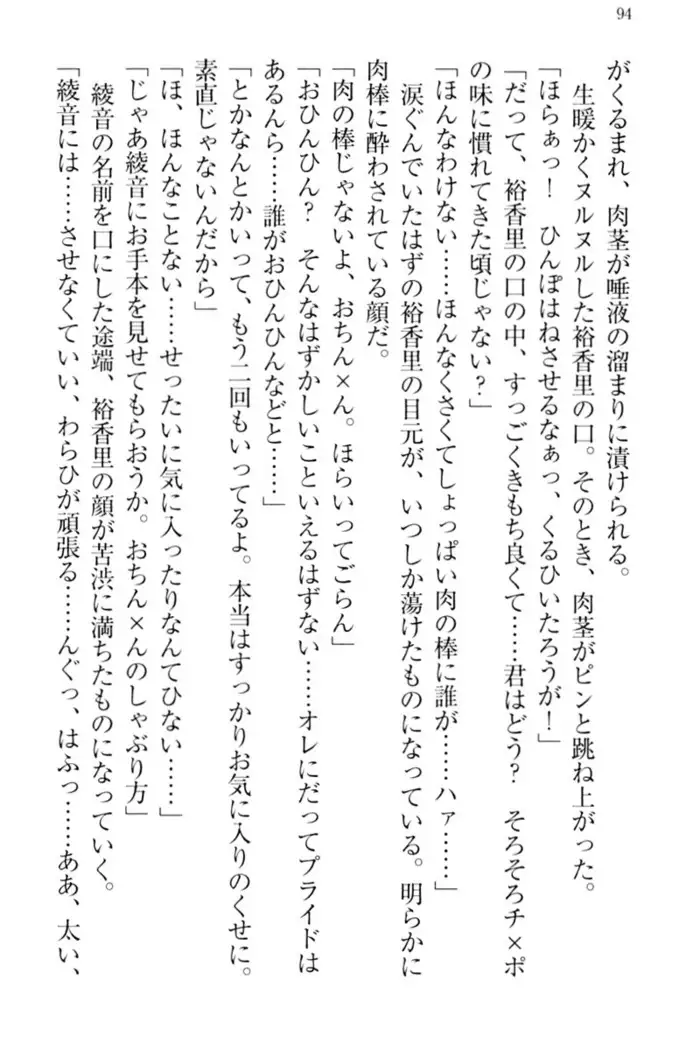 94
がくるまれ、肉茎が唾液の溜まりに漬けられる。
生暖かくヌルヌルした裕香里の口。そのとき、肉茎がピンと跳ね上がった。
「ほらぁっ！　ひんぽはねさせるなぁっ、くるひいたろうが！」
「だって、裕香里の口の中、すっごくきもち良くて……君はどう？　そろそろチ×ポ
の味に慣れてきた頃じゃない？」
「ほんなわけない……ほんなくさくてしょっぱい肉の棒に誰が……ハァ……」
涙ぐんでいたはずの裕香里の目元が、いつしか蕩けたものになっている。明らかに
肉棒に酔わされている顔だ。
「肉の棒じゃないよ、おちん×ん。ほらいってごらん」
「おひんひん？　そんなはずかしいこといえるはずない……オレにだってプライドは
あるんら……誰がおひんひんなどと……」
「とかなんとかいって、もう二回もいってるよ。本当はすっかりお気に入りのくせに。
素直じゃないんだから」
「ほ、ほんなことない……せったいに気に入ったりなんてひない……」
「じゃあ綾音にお手本を見せてもらおうか。おちん×んのしゃぶり方」
綾音の名前を口にした途端、裕香里の顔が苦渋に満ちたものになっていく。
「綾音には……させなくていい、わらひが頑張る……んぐっ、はふっ……ああ、太い、